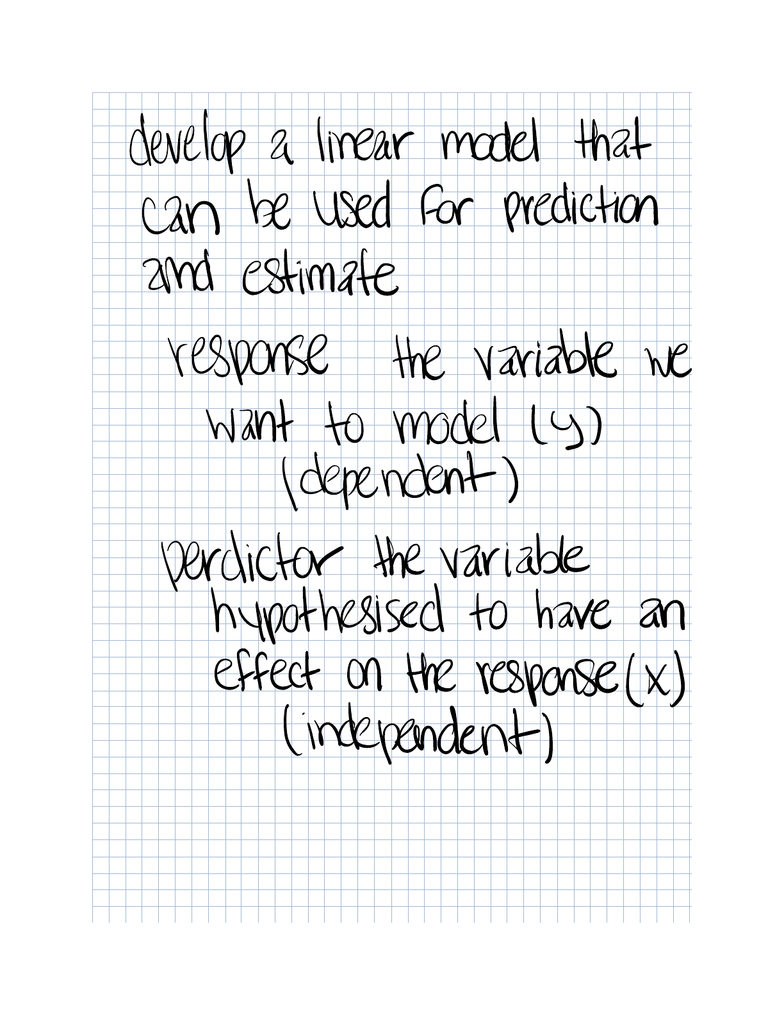 develop a linear model that
can be used for prediction
and estimate
response the variable we
want to model (y)
(dependent)
perdictor the variable
hypothesised to have an
effect on the response (x)
(independent)